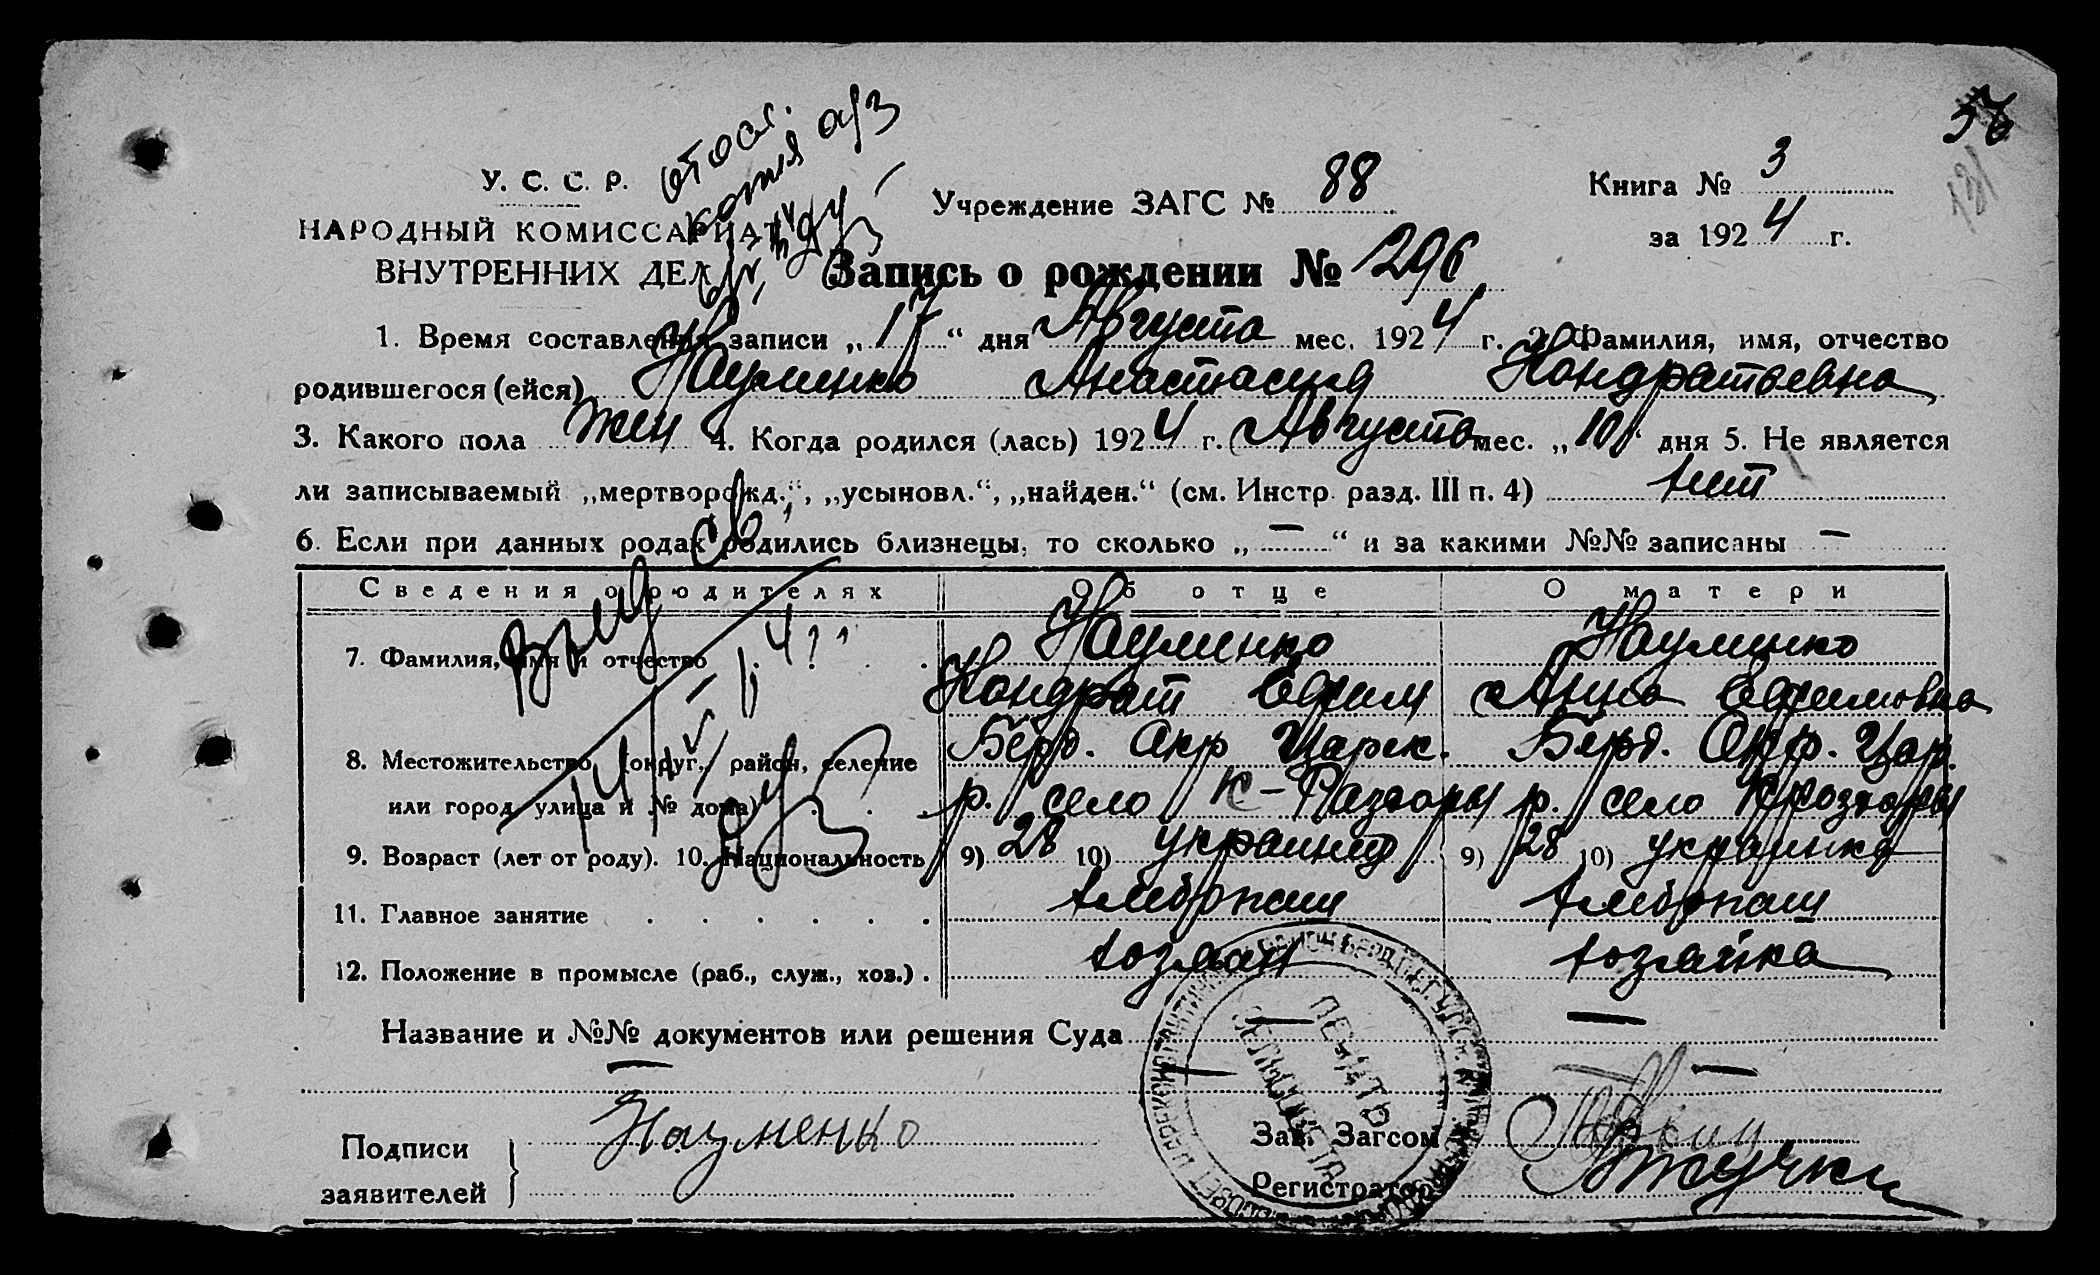 отосл.
копия а/з
У. С. С. Р.
НАРОДНЫЙ КОМИССАРИАТ
ВНУТРЕННИХ ДЕЛ
Учреждение ЗАГС № 88
Книга № 3
за 1924 г.
36
181
Запись о рождении № 296
1. Время составления записи „17“ дня Августа мес. 1924 г. 2. Фамилия, имя, отчество
родившегося (ейся) Науменко Анастасия Кондратьевна
3. Какого пола жен 4. Когда родился (лась) 1924 г. Августа мес. „10“ дня 5. Не является
ли записываемый „мертворожд.“, „усыновл.“, „найден.“ (см. Инстр. разд. III п. 4) нет
6. Если при данных родах родились близнецы, то сколько „—“ и за какими №№ записаны —
Сведения о родителях Об отце О матери
7. Фамилия, имя и отчество Науменко Науменко
Кондрат Ефим Анна Ефимовна
8. Местожительство (округ, район, селение Берд. Окр Царек. Берд. Окр. Цар.
или город, улица и № дома) р. село К-Раздоры р. село К Роздоры
9. Возраст (лет от роду). 10. Национальность 9) 28 10) украинец 9) 28 10) украинка
11. Главное занятие хлебопаш хлебопаш
12. Положение в промысле (раб., служ., хоз.) хозяин хозяйка
Название и №№ документов или решения Суда — —
— — —
Подписи заявителей Науменко
Зав. Загсом
Регистратор
ПЕЧАТЬ